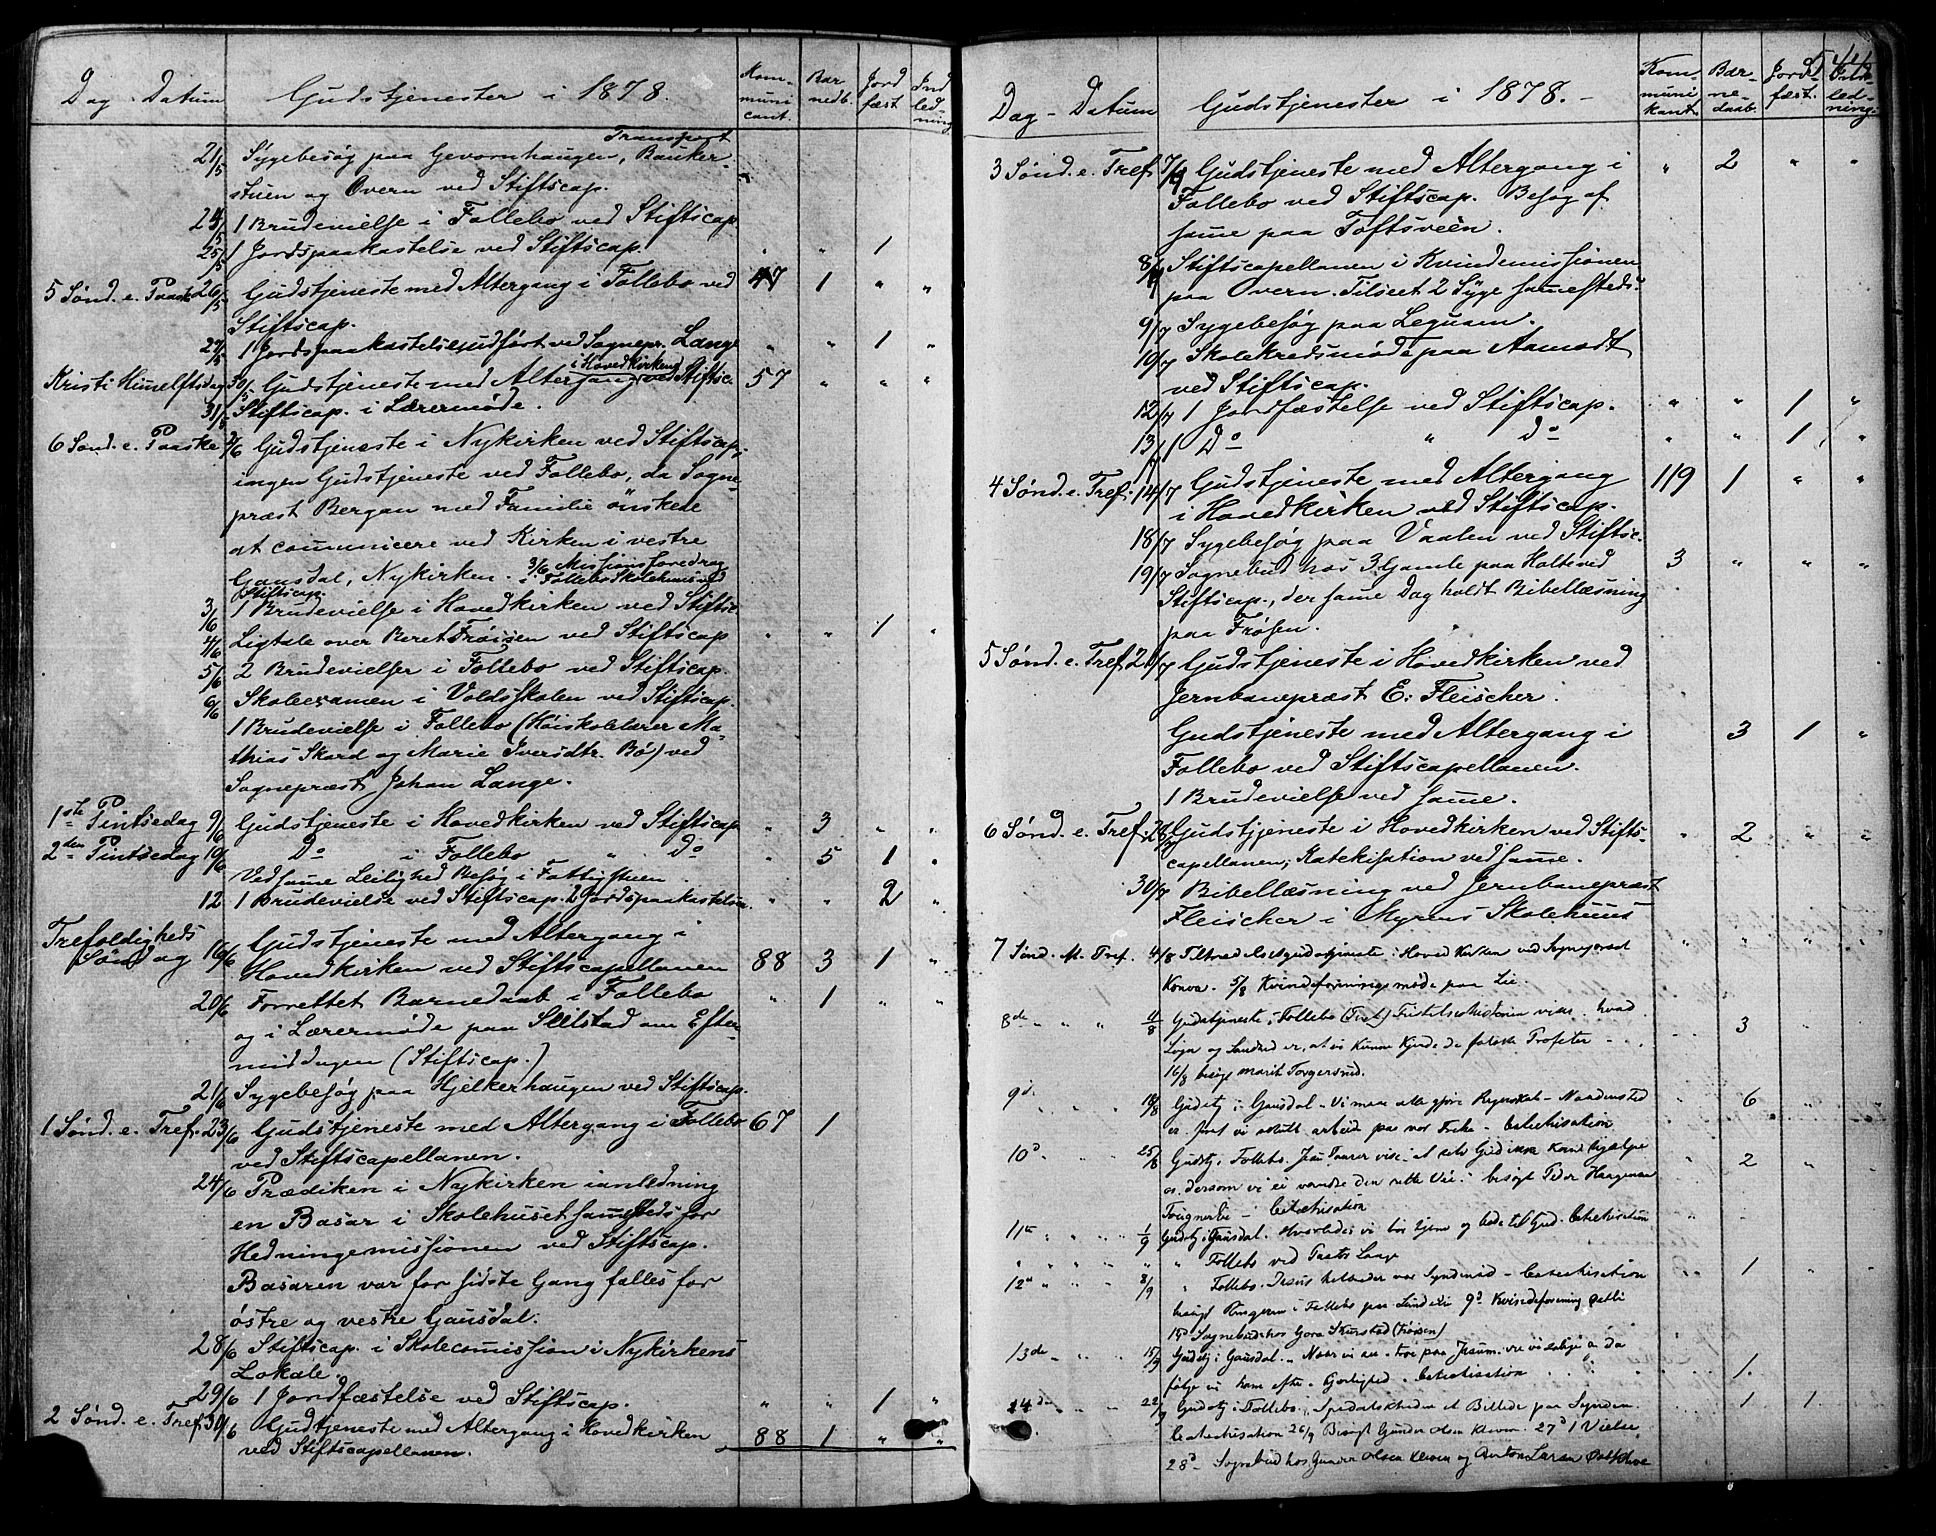 Dag - Datum Gudstjenester i 1878. Kommunicant. Barnedb. Jordfæst Indledning
Transport
21/5 Sygebesøg paa Gevornhaugen, Bauker-
stuen og Overn ved Stiftscap.
24/5 1 Brudevielse i Follebo ved Stiftscap
25/5 1 Jordspaakastelse ved Stiftscap. " " 1
5 Sønd. e. Paaske 26/5 Gudstjeneste med Altergang i Follebo ved 47 1 " "
Stiftscap.
27/5 1 Jordspaakastelse udført ved Sognepr. Lange " " 1 "
i Hovedkirken
Kristi Himelftsdag 30/5 Gudstjeneste med Altergang ved Stiftsc. 57 " " "
31/5 Stiftscap. i Lærermøde.
6 Sønd. e. Paaske 2/6 Gudstjeneste i Nykirken ved Stiftscap.,
ingen Gudstjeneste ved Follebo, da Sogne-
præst Bergan med Familie önskede
at communicere ved Kirken i vestre
Gausdal, Nykirken. 3/6 Missionsforedrag
i Follebo Skolehus ved
Stiftscap.
3/6 1 Brudevielse i Hovedkirken ved Stiftsc
4/6 Ligtale over Beret Frøisen ved Stiftscap " " 1 "
5/6 2 Brudevielser i Follebo ved Stiftscap.
6/6 Skoleexamen i Voldsskolen ved Stiftscap.
1 Brudevielse i Follebo (Høiskolelærer Ma-
thias Skard og Marie Iversdtr. Bö) ved
Sognepræst Johan Lange.
1ste Pintsedag 9/6 Gudstjeneste i Hovedkirken ved Stiftscap " 3 " "
2den Pintsedag 10/6 Do i Follebo " Do " 5 1 "
Ved same Leilighed Besøg i Fattigstuen.
12 1 Brudevielse ved Stiftscap. 2 Jordspaakastelser. " " 2 "
Trefoldigheds
Søndag 16/6 Gudstjeneste med Altergang i
Hovedkirken ved Stiftscapellanen 88 3 1 "
20/6 Forrettet Barnedaab i Follebo " 1 " "
og i Lærermøde paa Seilstad om Efter-
middagen (Stiftscap.)
21/6 Sygebesøg paa Hjelkerhaugen ved Stiftscap.
1 Sønd. e. Tref. 23/6 Gudstjeneste med Altergang i Follebo 67 1
ved Stiftscapellanen.
24/6 Prædiken i Nykirken i anledning
en Basar i Skolehuset samesteds for
Hedningemissionen ved Stiftscap.
Basaren var for sidste Gang fælles for
østre og vestre Gausdal.
28/6 Stiftscap. i Skolecomission i Nykirkens
Lokale.
29/6 1 Jordfæstelse ved Stiftscap. " " 1 "
2 Sønd. e. Tref. 30/6 Gudtjeneste med Altergang i Hovedkirken 88 1 " "
ved Stiftscapellanen.
Dag - Datum Gudstjenester i 1878. - Kommunikant Bærnedaab. Jordfæst. Indledning.
3 Sønd. e. Tref. 7/7 Gudstjeneste med Altergang i " 2 " "
Follebo ved Stiftscap. Besøg af
same paa Toftsveen.
8/7 Stiftscapellanen i Kvindemissionen
paa Overn. Tilseet 2 Syge samesteds.
9/7 Sygebesøg paa Leguam.
10/7 Skolekredsmøde paa Aamodt
ved Stiftscap.
12/7 1 Jordfæstelse ved Stiftscap. " " 1 "
13/7 1 Do " Do " " 1 "
4 Sønd. e. Tref. 14/7 Gudstjeneste med Altergang 119 1 " "
i Hovedkirken ved Stiftscap.
18/7 Sygebesøg paa Vaalen ved Stiftsc.
19/7 Sognebud hos 3 Gamle paa Holte ved 3 " " "
Stiftscap., der same Dag holdt Bibellæsning
paa Frøsen.
5 Sønd. e. Tref. 21/7 Gudstjeneste i Hovedkirken ved
Jernbanepræst E. Fleischer.
Gudstjeneste med Altergang i 3 1 "
Follebo ved Stiftscapellanen.
1 Brudevielse ved same.
6 Sønd. e. Tref. 28/7 Gudstjeneste i Hovedkirken ved Stifts- " 2 " "
capellanen; Katekisation ved same.
30/7 Bibellæsning ved Jernbanepræst
Fleischer i Myrens Skolehuus
7 Sønd. e. Tref. 4/8 Tiltrædelsesgudstjeneste i Hovedkirken ved Sognepræst " " " "
Konow. 5/8 Kvindeforenings møde paa Lie.
8de " " 11/8 Gudstjeneste i Follebo 3
Løgn og Sandhed er, at vi kunne kjende de falske Profeter
16/8 besøgt Marit Torgersrud.
9d. " " 18/8 Gudstj. i Gausdal - Vi maa alle gjøre Regnskab - 6
arbeide paa vor Frelse - catechisation
10d " " 25/8 Gudstj. Follebo. 2
dersom vi ei vandre den rette Vei. besøgt Peder
catechisation
11te " " 1/9 Gudstj. i Gausdal. Hvorledes vi bør tjene og bede til Gud - catechisation
" " " Follebo ved Pastor Lange
12te " " 8/9 " Follebo. Jesus helbreder vor - Catechisation 1
i Follebo paa 9d Kvindeforening
19d Sognebud hos Skurstad (Frøisen)
13de " " 15/9 Gudstj. i Gausdal.
følge vi ham efter. Catechisation 1.
14de " " 22/9 Gudstj. i Follebo, Spedalskheden et Billede paa Synden. 1 1
Catechisation 26/9 Besøgt Gunder Olsen Kleven. 27d 1 Vielse.
28d - Sognebud hos Gunder Olsen Kleven og Anton Larsen